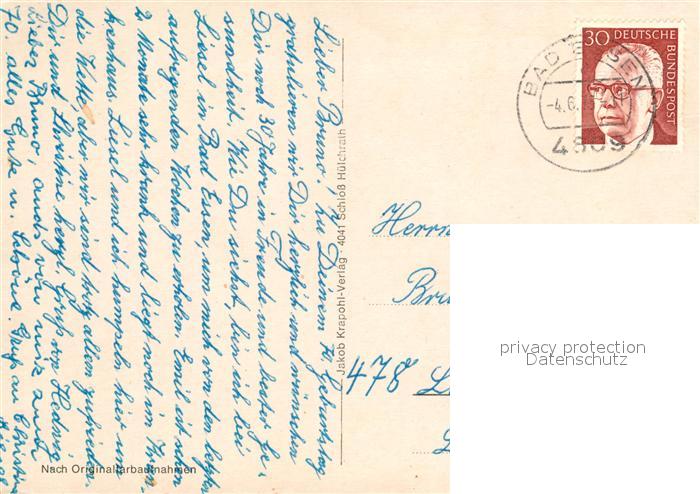 Lieber Bruno! Zu Deinem 70. Geburtstag
gratulieren wir Dir herzlich und wünschen
Dir noch 30 Jahre in Freude und bester Ge-
sundheit. Wie Du siehst, bin ich bei
Liesel in Bad Essen, um mich von den letzten
aufregenden Wochen zu erholen. Emil ist schon
2 Monate sehr krank und liegt noch im Kran-
kenhaus. Liesel und ich humpeln hier um
die Wette, aber wir sind trotz allem zufrieden.
Dir und Christine herzl. Grüße von Hedwig
Lieber Bruno, auch von mir zum
70. alles Gute u. schöne Grüße an Christine
Jakob Krapohl-Verlag · 4041 Schloß Hülchrath
Nach Originalfarbaufnahmen
30 DEUTSCHE
BUNDESPOST
BAD ESSEN
-4.6.
4509
Herrn
Bru
478 L
privacy protection
Datenschutz